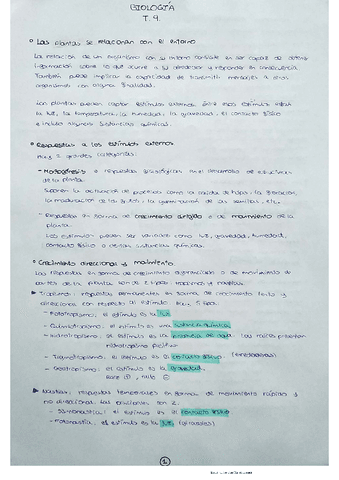 BIOLOGÍA
T. 9.
Las plantas se relacionan con el entorno
La relación de un organismo con su entorno consiste en ser capaz de detectar
información sobre lo que ocurre a su alrededor y responder en consecuencia.
También puede implicar la capacidad de transmitir mensajes a otros
organismos con alguna finalidad.
Las plantas pueden captar estímulos externos. Entre esos estímulos están
la luz, la temperatura, la humedad, la gravedad, el contacto físico
e incluso algunas sustancias químicas.
Respuestas a los estímulos externos
Hay 2 grandes categorías:
- Morfogénesis o respuestas fisiológicas en el desarrollo de estructuras
de la planta.
Suponen la activación de procesos como la caída de hojas, la floración,
la maduración de los frutos, la germinación de las semillas, etc.
- Respuestas en forma de crecimiento dirigido o de movimiento de la
planta.
Los estímulos pueden ser variados como luz, gravedad, humedad,
contacto físico o ciertas sustancias químicas.
Crecimiento direccional y movimiento.
Las respuestas en forma de crecimiento direccional o de movimiento de
partes de la planta son de 2 tipos: tropismos y nastias.
Tropismos: respuestas permanentes en forma de crecimiento lento y
direccional con respecto al estímulo. Hay 5 tipos:
- Fototropismo: el estímulo es la luz
- Quimiotropismo: el estímulo es una sustancia química.
- Hidrotropismo: el estímulo es la presencia de agua (las raíces presentan
hidrotropismo positivo)
- Tigmotropismo: el estímulo es el contacto físico. (enredaderas)
- Geotropismo: el estímulo es la gravedad.
Nastias: respuestas temporales en forma de movimiento rápido y
no direccional. Las posiciones son 2:
el estímulo es el contacto físico
- Fotonastia: el estímulo es la luz (girasoles)
1